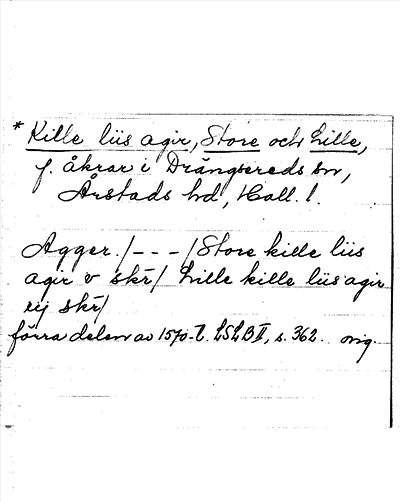 * Kille liis agir, Store och Lille,
f. åkrar i Drängsereds sn,
Årstads hd, Hall. l.
Agger. /- - - / Store kille liis
agir v skr̄/ Lille kille liis agir
iij skr̄/
förra delen av 1570-t. LSLB II, s. 362. orig.